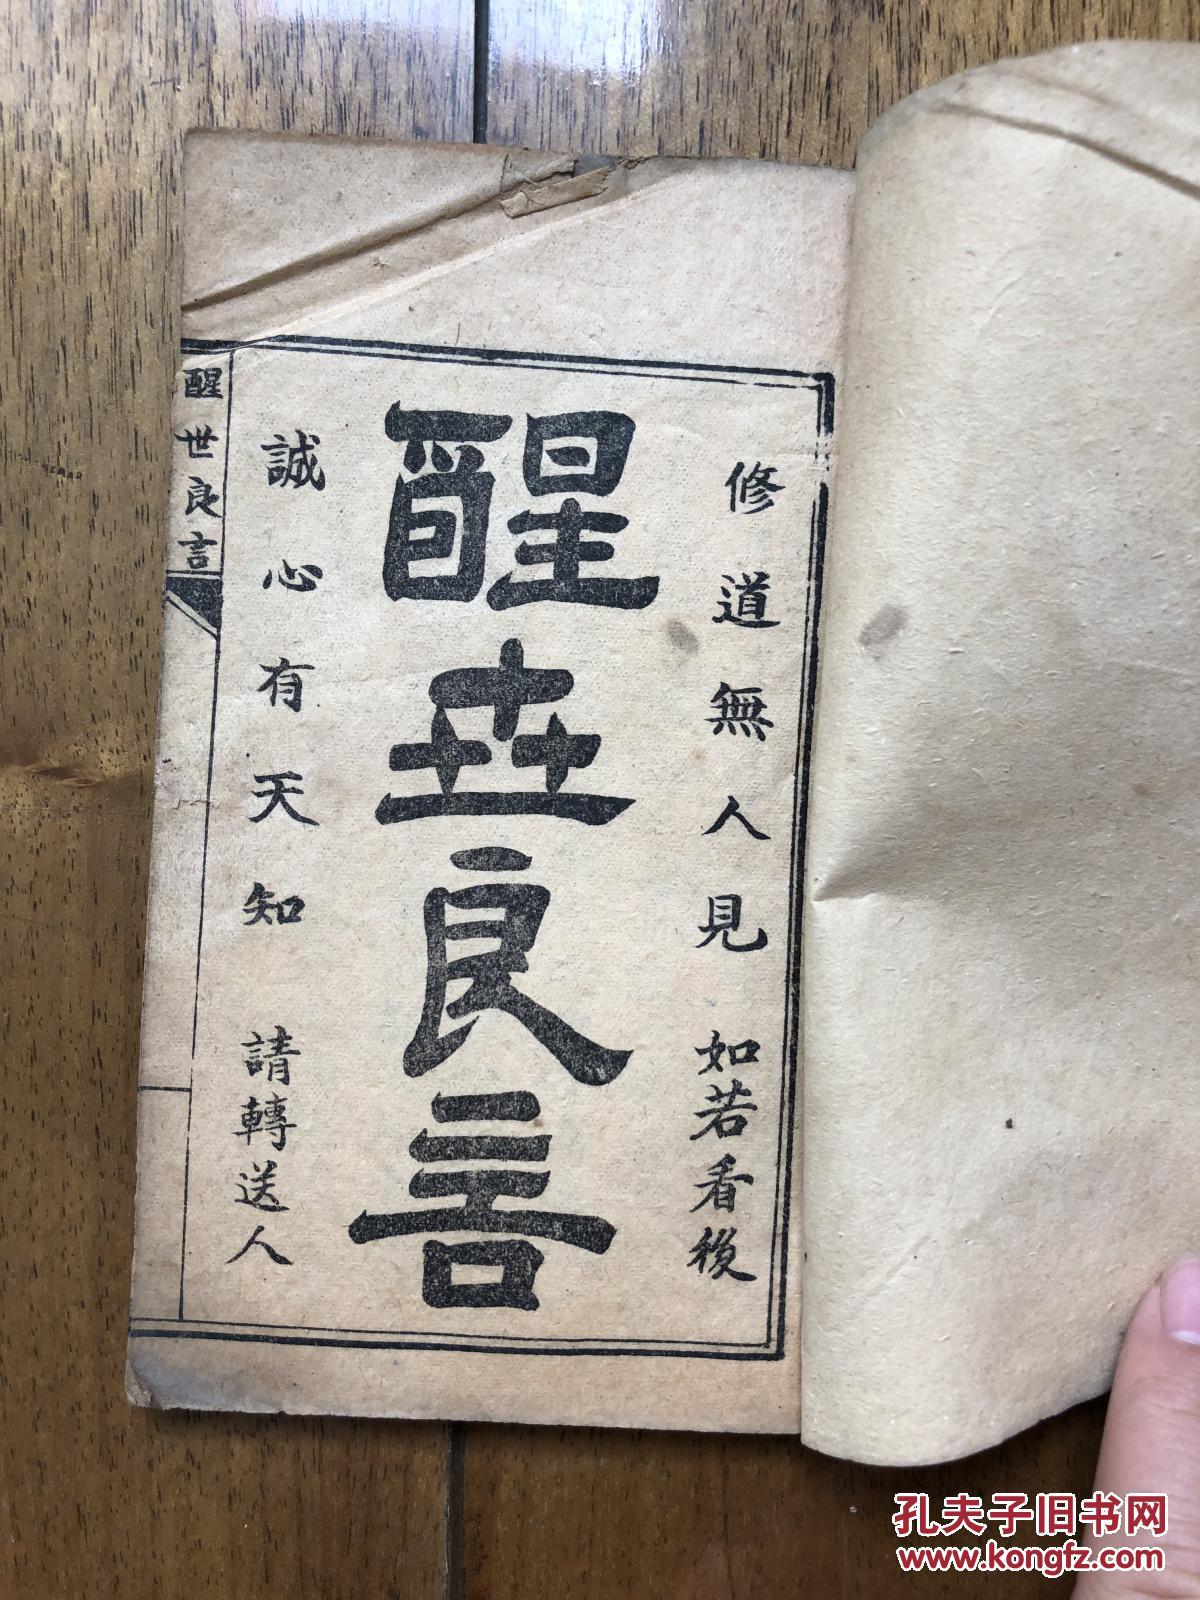 修道無人見 如若看後
醒世良言
誠心有天知 請轉送人
醒世良言
孔夫子旧书网
www.kongfz.com